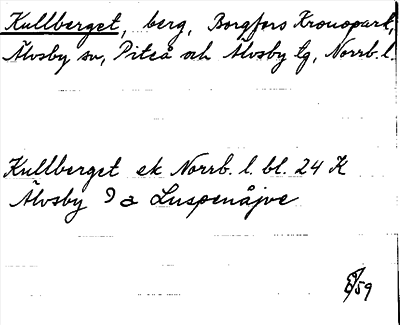 Kullberget, berg, Borgfors Kronopark,
Älvsby sn, Piteå och Älvsby tg, Norrb. l.
Kullberget ek Norrb. l. bl. 24 K
Älvsby 9 a Luspenåjve
59